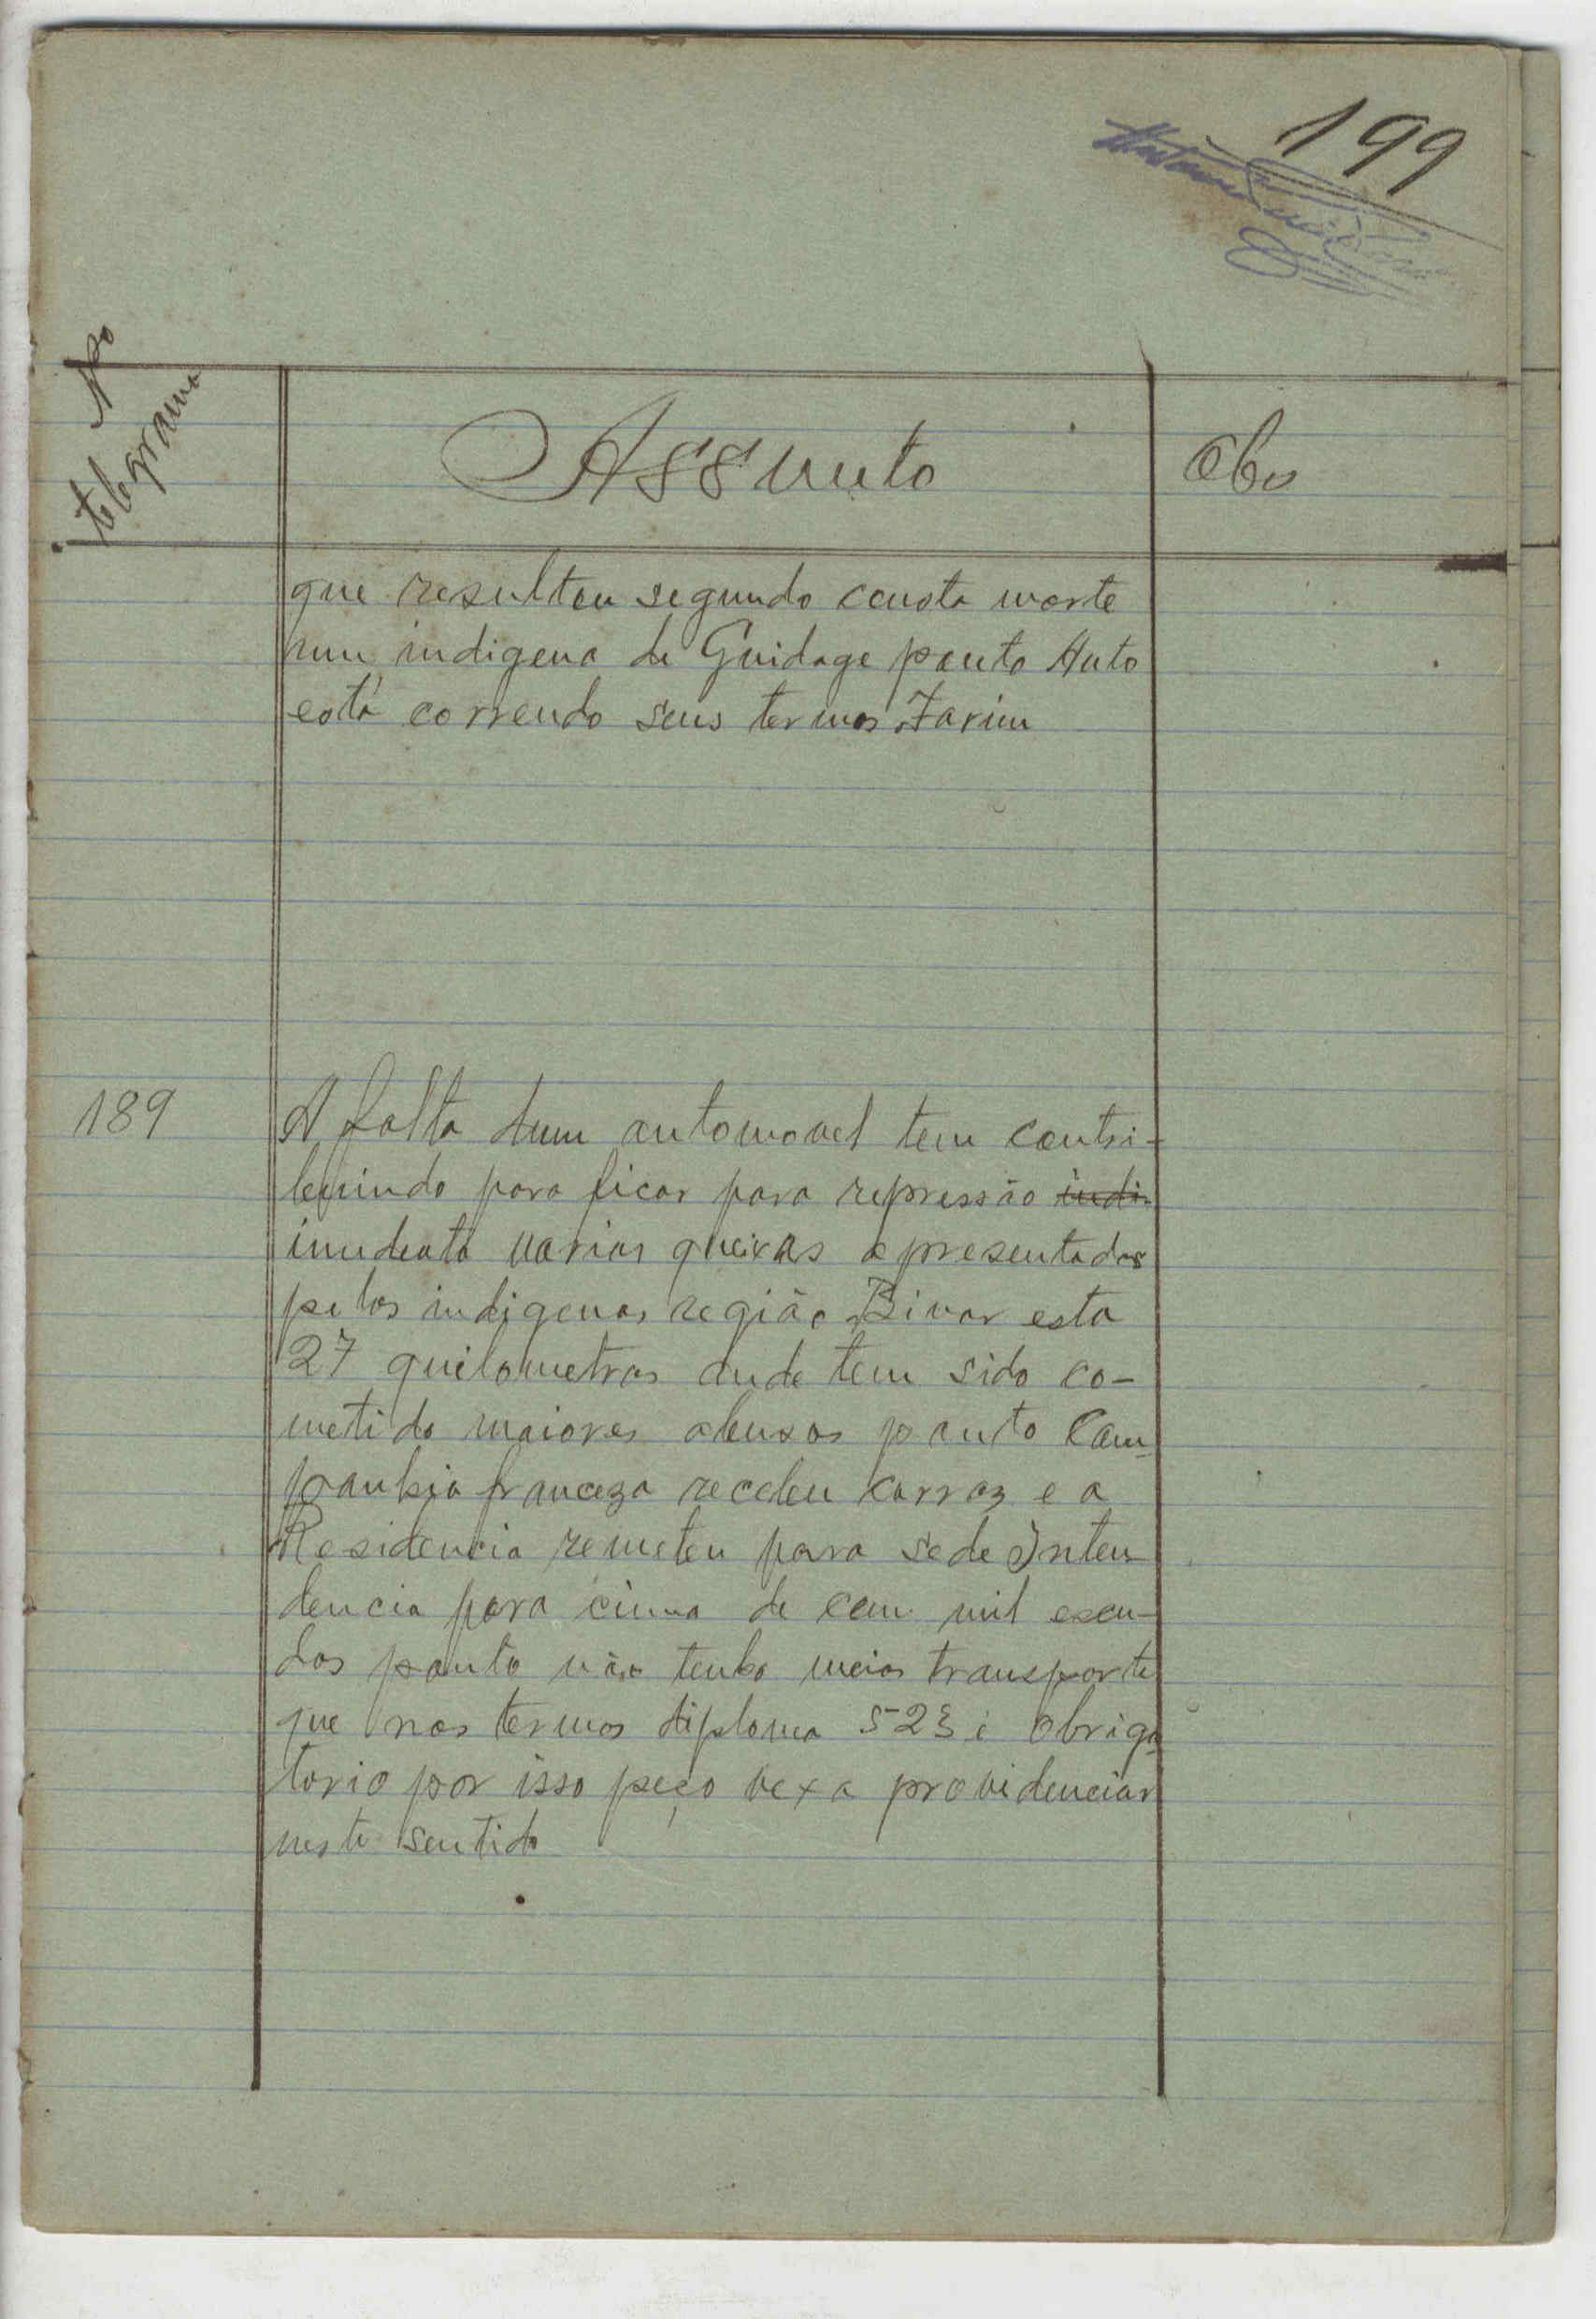 199
Nº
telegrama
Assunto
Obs
que resultou segundo consta morte
num indigena de Guidage ponto Auto
está correndo seus termos Farim
189
A falta dum automovel tem contri-
buindo para ficar para repressão indi-
imediata varias queixas apresentadas
pelos indigenas região Binar esta
27 quilometros onde tem sido co-
metido maiores abusos ponto Com-
panhia franceza recebeu carros e a
Residencia remeteu para sede Inten-
dencia para cima de cem mil escu-
dos ponto não tenho meios transporte
que nos termos diploma 523 é obriga-
torio por isso peço vexa providenciar
neste sentido